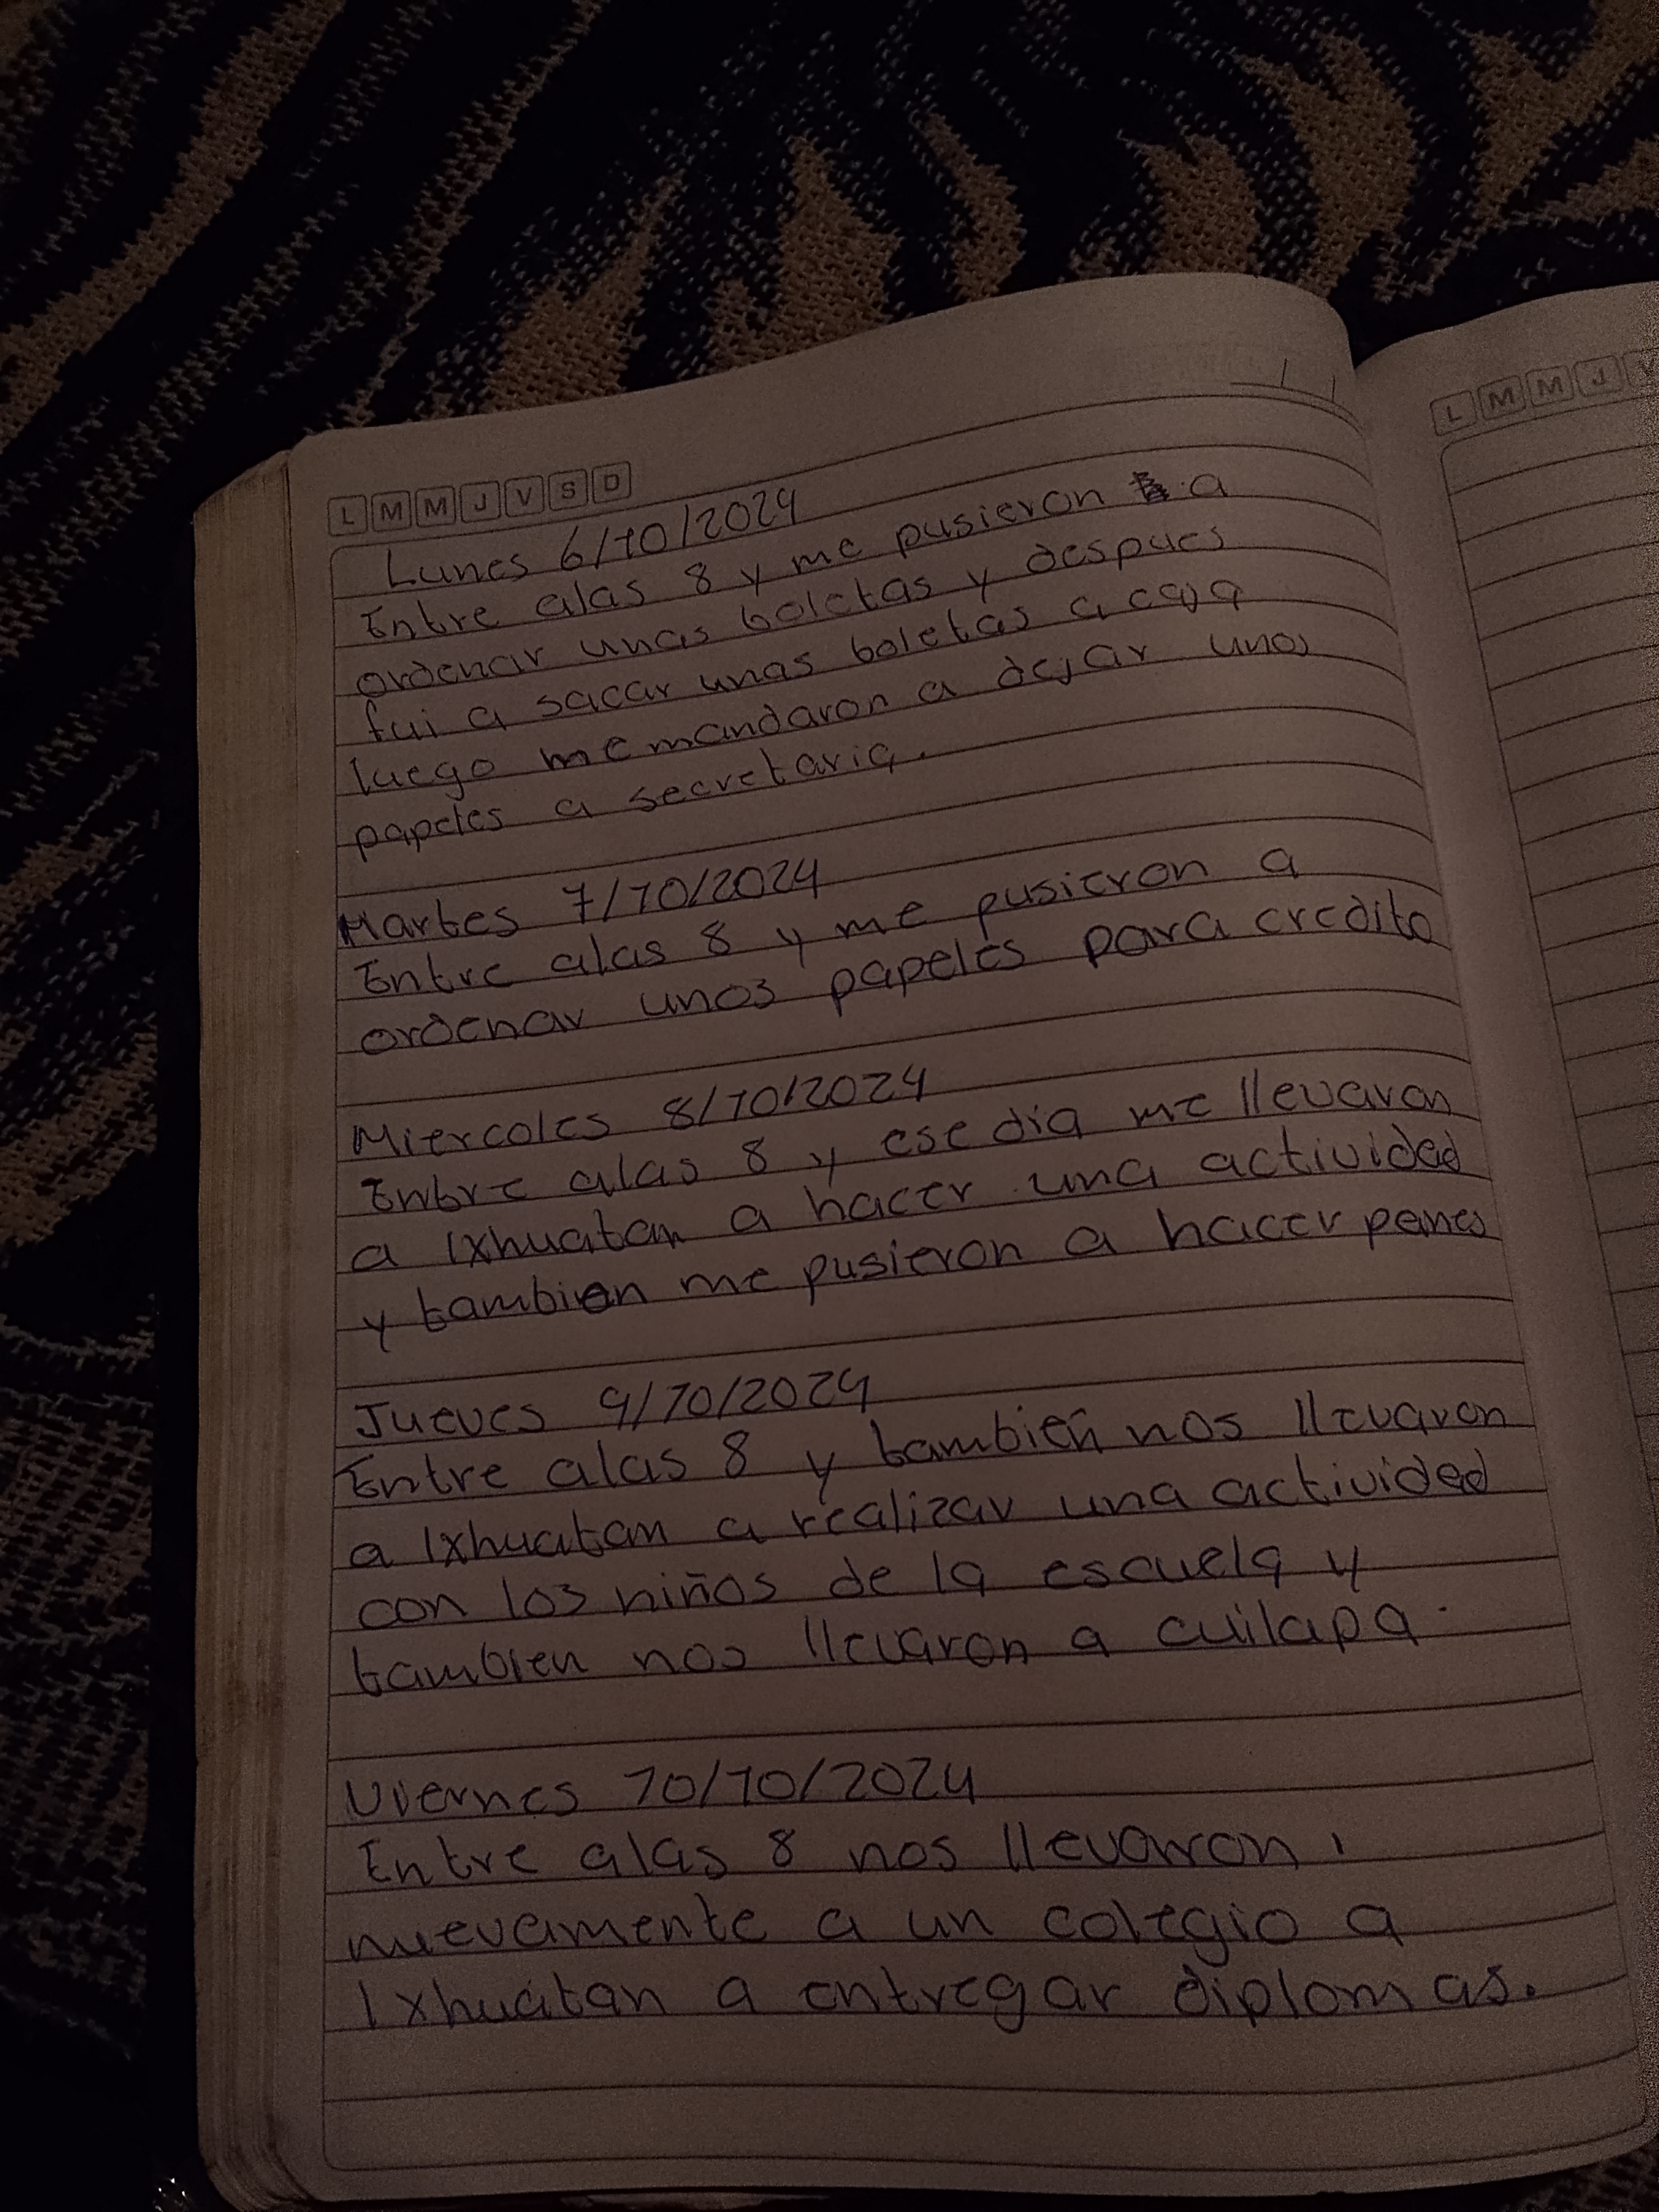 L M M J V S D
Lunes 6/10/2024
Entre alas 8 y me pusieron a
ordenar unas boletas y despues
fui a sacar unas boletas a caja
luego me mandaron a dejar unos
papeles a secretaria.
Martes 7/10/2024
Entre alas 8 y me pusieron a
ordenar unos papeles para credito
Miercoles 8/10/2024
Entre alas 8 y ese dia me llevaron
a Ixhuatan a hacer una actividad
y tambien me pusieron a hacer panes
Jueves 9/10/2024
Entre alas 8 y también nos llevaron
a Ixhuatan a realizar una actividad
con los niños de la escuela y
tambien nos llevaron a cuilapa.
Viernes 10/10/2024
Entre alas 8 nos llevaron
nuevamente a un colegio a
Ixhuatan a entregar diplomas.
L M M J V